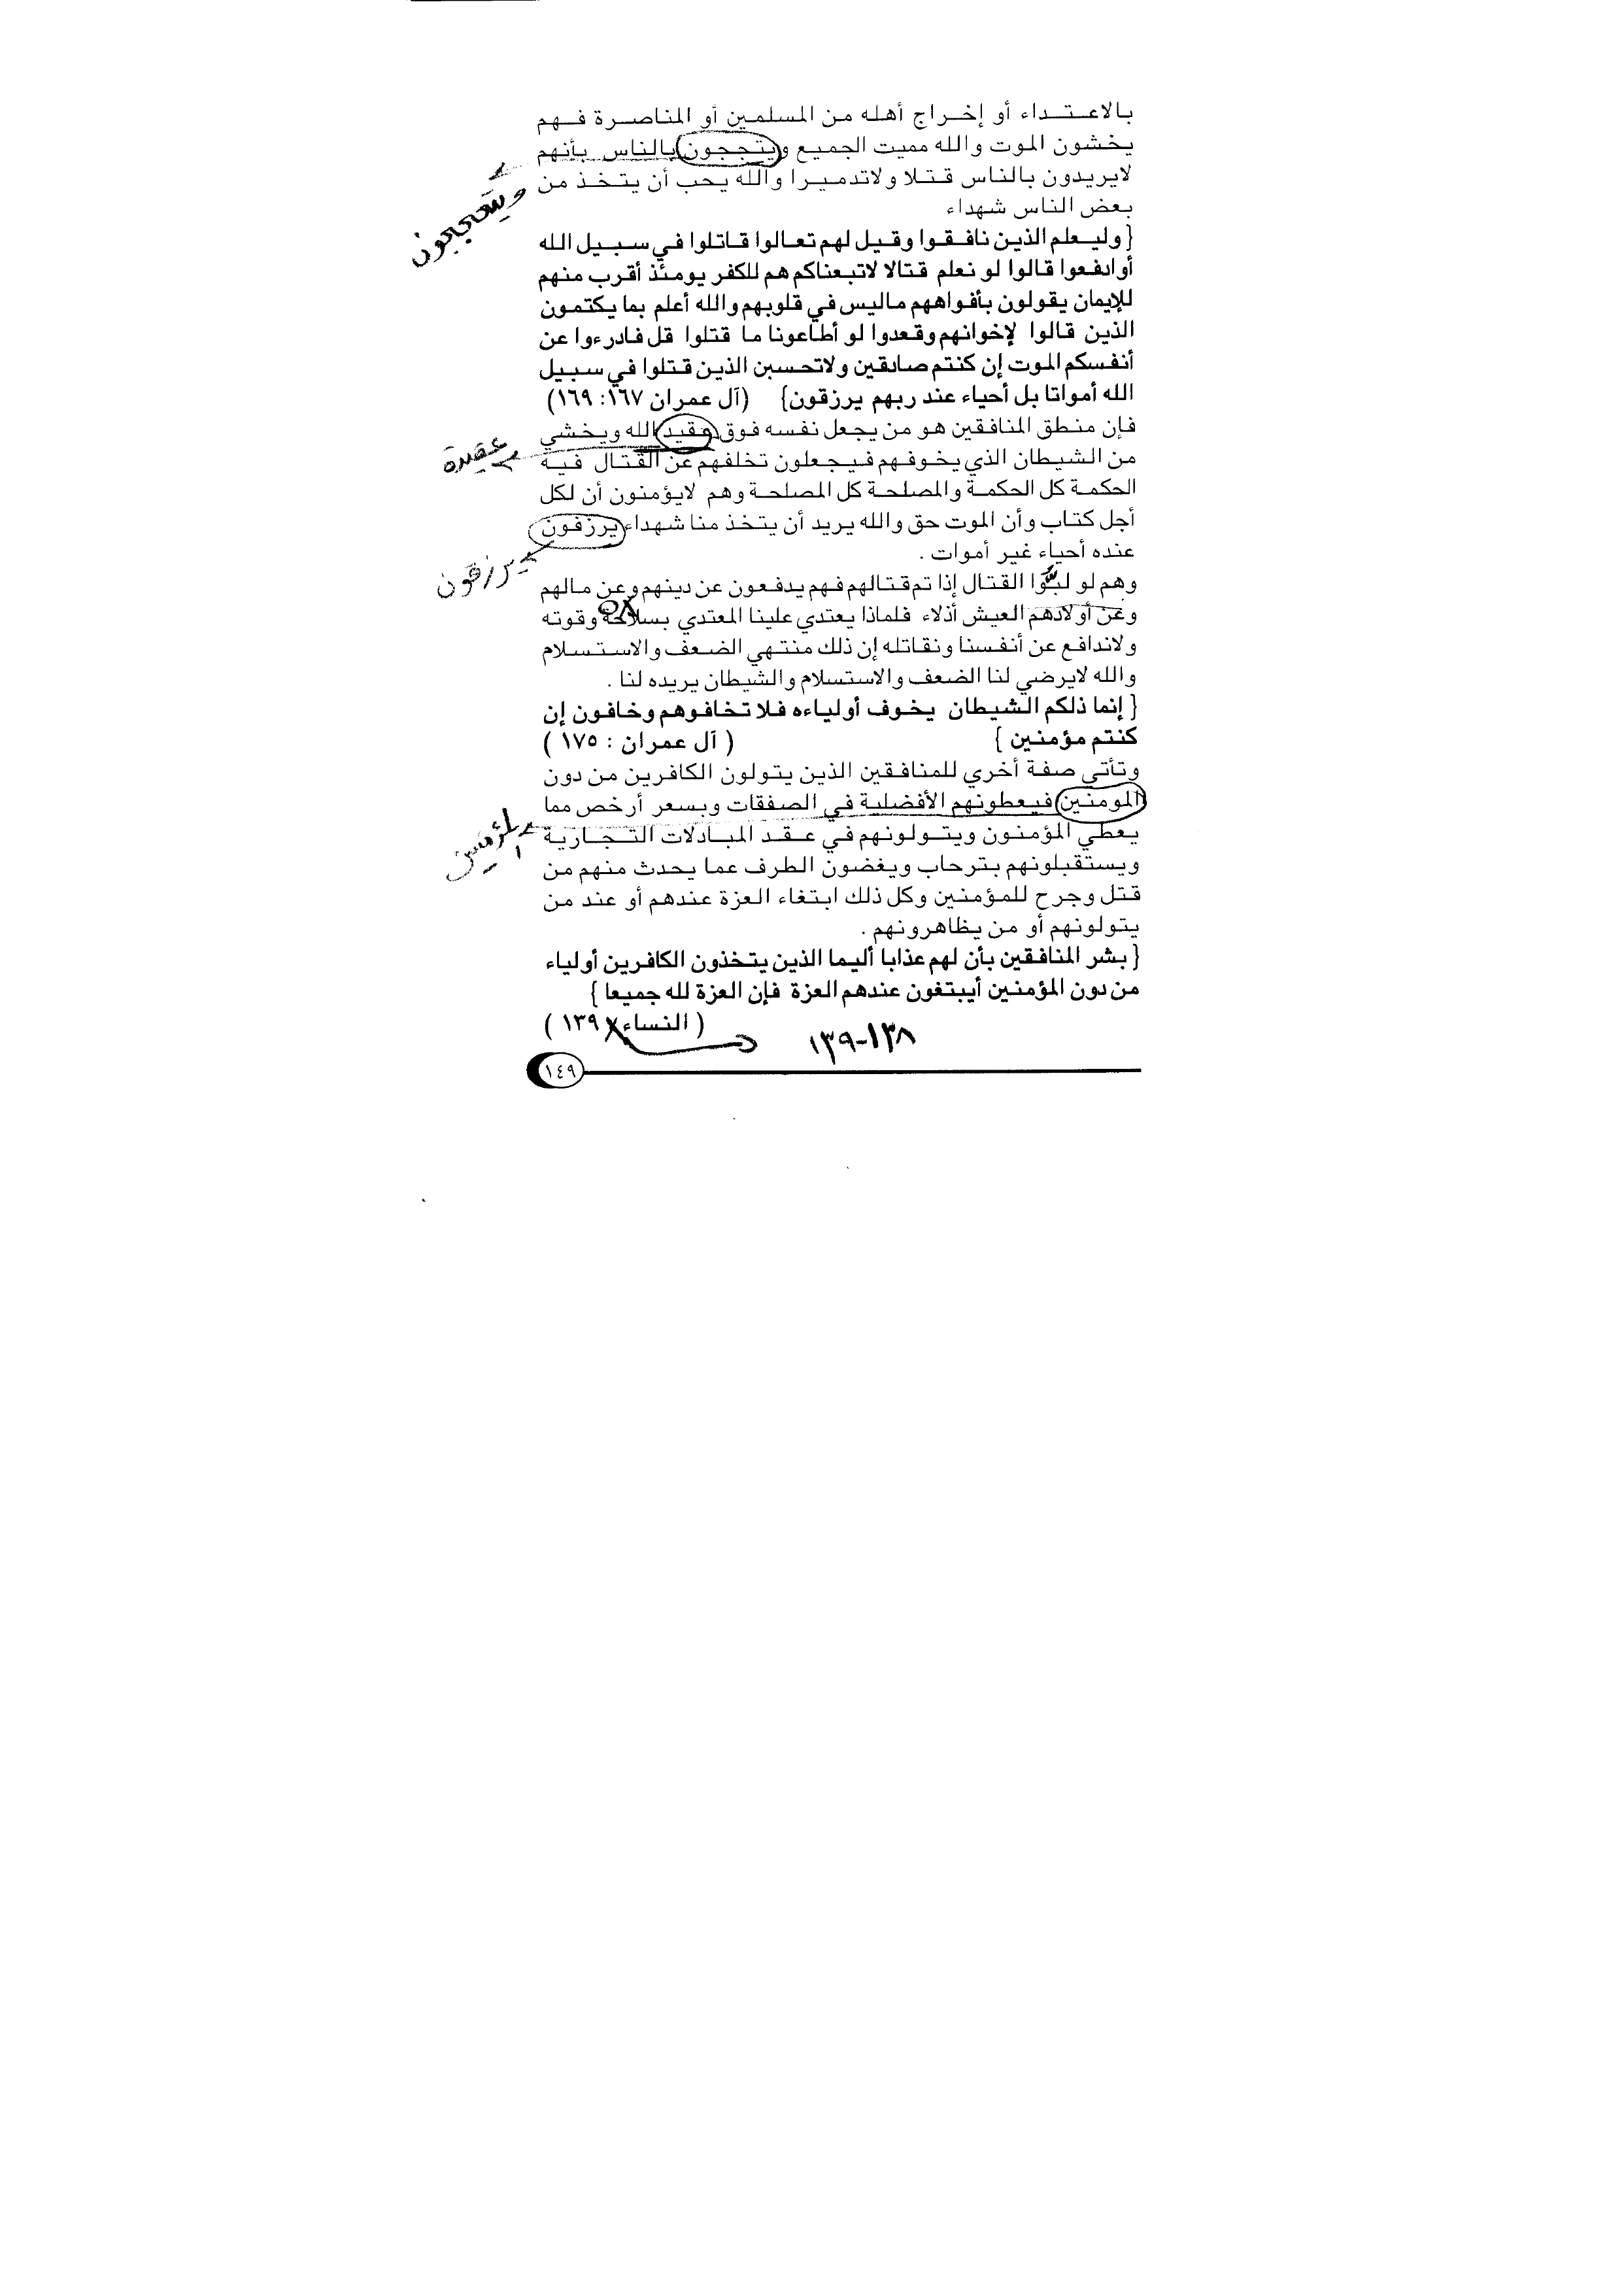 بالاعتداء أو إخراج أهله من المسلمين أو المناصرة فهم
يخشون الموت والله مميت الجميع ويتججون بالناس بأنهم
لايريدون بالناس قتلا ولاتدميرا والله يحب أن يتخذ من
بعض الناس شهداء
{وليعلم الذين نافقوا وقيل لهم تعالوا قاتلوا في سبيل الله
أوادفعوا قالوا لو نعلم قتالا لاتبعناكم هم للكفر يومئذ أقرب منهم
للإيمان يقولون بأفواههم ماليس في قلوبهم والله أعلم بما يكتمون
الذين قالوا لإخوانهم وقعدوا لو أطاعونا ما قتلوا قل فادرءوا عن
أنفسكم الموت إن كنتم صادقين ولاتحسبن الذين قتلوا في سبيل
الله أمواتا بل أحياء عند ربهم يرزقون} (آل عمران ١٦٧: ١٦٩)
فإن منطق المنافقين هو من يجعل نفسه فوق عقيد الله ويخشي
عقيدة
من الشيطان الذي يخوفهم فيجعلون تخلفهم عن القتال فية
الحكمة كل الحكمة والمصلحة كل المصلحة وهم لايؤمنون أن لكل
أجل كتاب وأن الموت حق والله يريد أن يتخذ منا شهداء يرزفون
عنده أحياء غير أموات .
يرزقون
وهم لو القتال إذا تم قتالهم فهم يدفعون عن دينهم وعن مالهم
وعن أولادهم العيش أذلاء فلماذا يعتدي علينا المعتدي بسلاحه وقوته
ولاندافع عن أنفسنا ونقاتله إن ذلك منتهي الضعف والاستسلام
والله لايرضي لنا الضعف والاستسلام والشيطان يريده لنا .
{ إنما ذلكم الشيطان يخوف أولياءه فلا تخافوهم وخافون إن
كنتم مؤمنين } ( آل عمران : ١٧٥ )
وتأتي صفة أخري للمنافقين الذين يتولون الكافرين من دون
المومنين فيعطونهم الأفضلية في الصفقات وبسعر أرخص مما
يعطي المؤمنون ويتولونهم في عقد المبادلات التجارية
ويستقبلونهم بترحاب ويغضون الطرف عما يحدث منهم من
قتل وجرح للمؤمنين وكل ذلك ابتغاء العزة عندهم أو عند من
يتولونهم أو من يظاهرونهم .
{ بشر المنافقين بأن لهم عذابا أليما الذين يتخذون الكافرين أولياء
من دون المؤمنين أيبتغون عندهم العزة فإن العزة لله جميعا }
( النساء ١٣٩ )
١٣٨-١٣٩
١٤٩